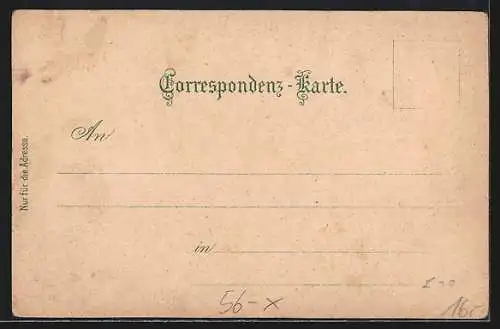 Correspondenz-Karte.
An
Nur für die Adresse.
in
56-x